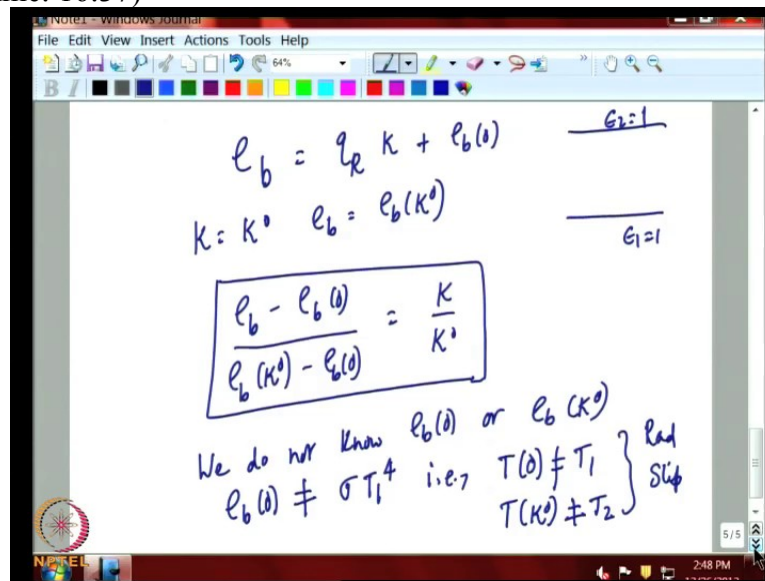 Note1 - Windows Journal
File Edit View Insert Actions Tools Help
64%
e_b = q_R K + e_b(0)
ϵ2=1
K = K⁰ e_b = e_b(K⁰)
ϵ1=1
(e_b - e_b(0)) / (e_b(K⁰) - e_b(0)) = K / K⁰
We do not know e_b(0) or e_b(K⁰)
e_b(0) ≠ σT₁⁴ i.e, T(0) ≠ T₁ } Rad
T(K⁰) ≠ T₂ } Slip
5/5
NPTEL
2:48 PM